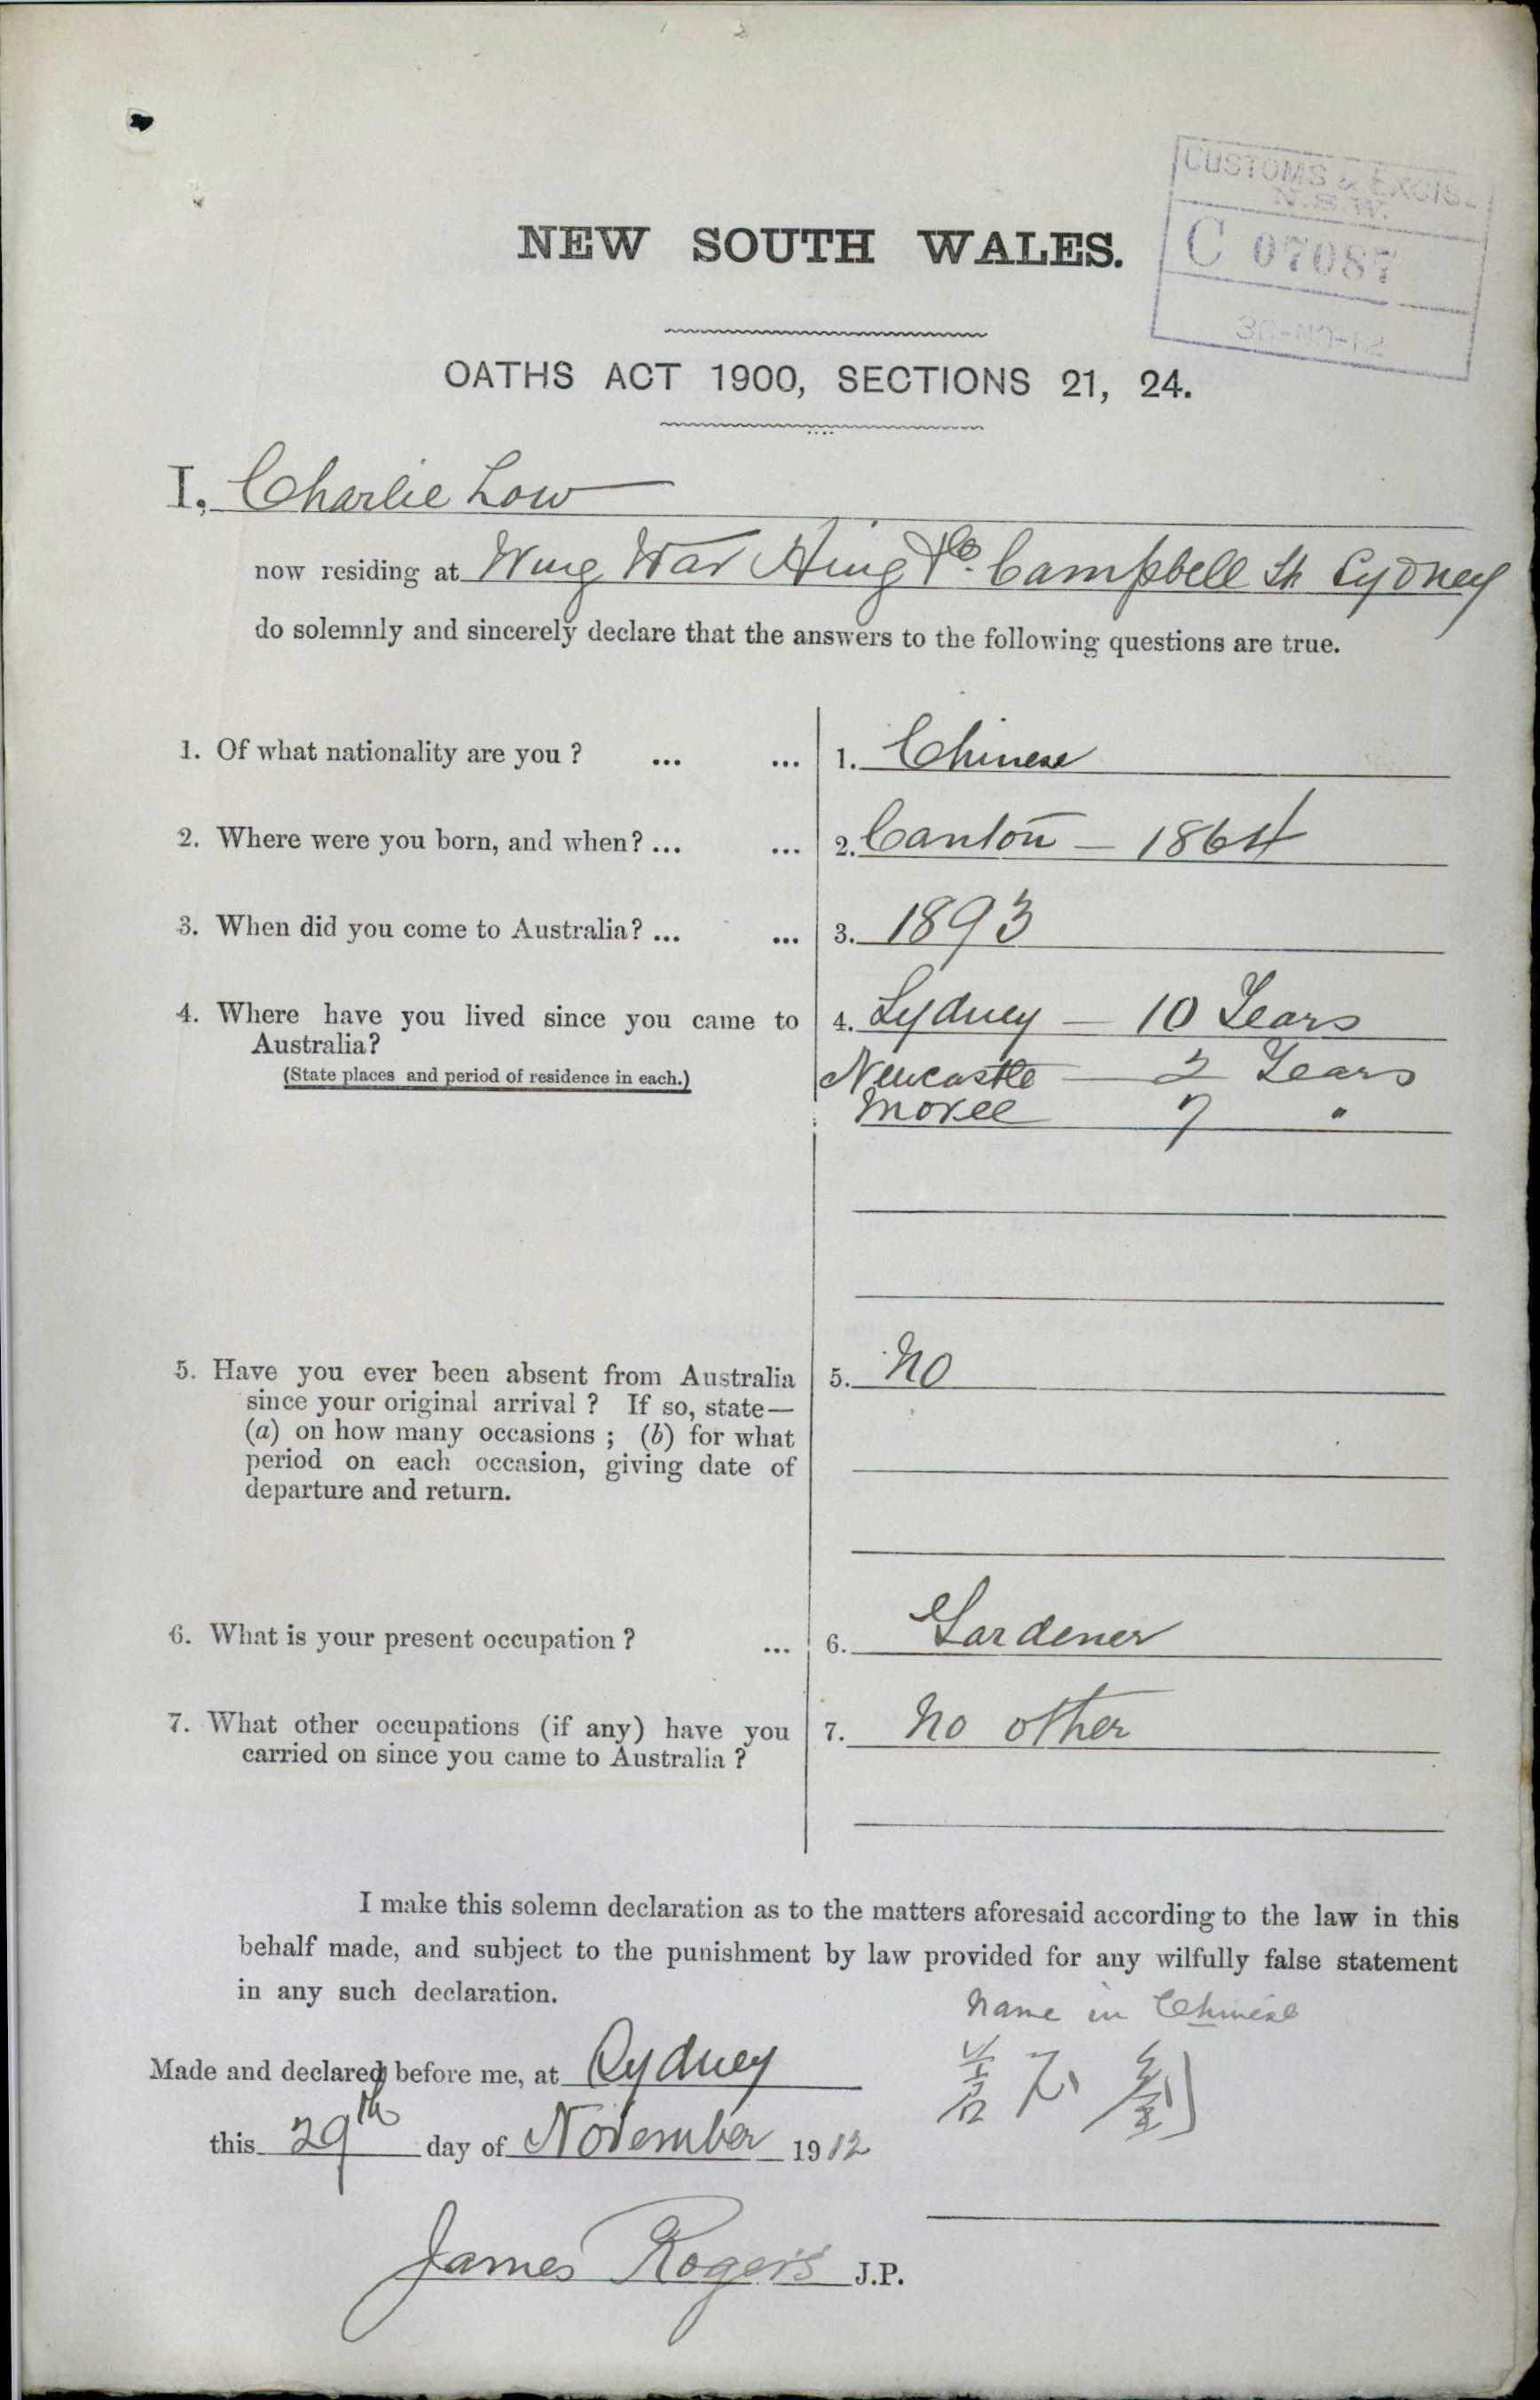 CUSTOMS & EXCISE
N.S.W.
C 07087
30-NO-12
NEW SOUTH WALES.
OATHS ACT 1900, SECTIONS 21, 24.
I, Charlie Low
now residing at Wing War Hing & Co. Campbell St Sydney
do solemnly and sincerely declare that the answers to the following questions are true.
1. Of what nationality are you ? ... ... 1. Chinese
2. Where were you born, and when? ... ... 2. Canton — 1864
3. When did you come to Australia? ... ... 3. 1893
4. Where have you lived since you came to 4. Sydney — 10 Years
Australia?
(State places and period of residence in each.) Newcastle — 2 Years
Moree 7 "
5. Have you ever been absent from Australia 5. No
since your original arrival ? If so, state—
(a) on how many occasions ; (b) for what
period on each occasion, giving date of
departure and return.
6. What is your present occupation ? ... 6. Gardener
7. What other occupations (if any) have you 7. No other
carried on since you came to Australia ?
I make this solemn declaration as to the matters aforesaid according to the law in this
behalf made, and subject to the punishment by law provided for any wilfully false statement
in any such declaration.
Name in Chinese
Made and declared before me, at Sydney
劉
this 29th day of November 1912
James Rogers J.P.